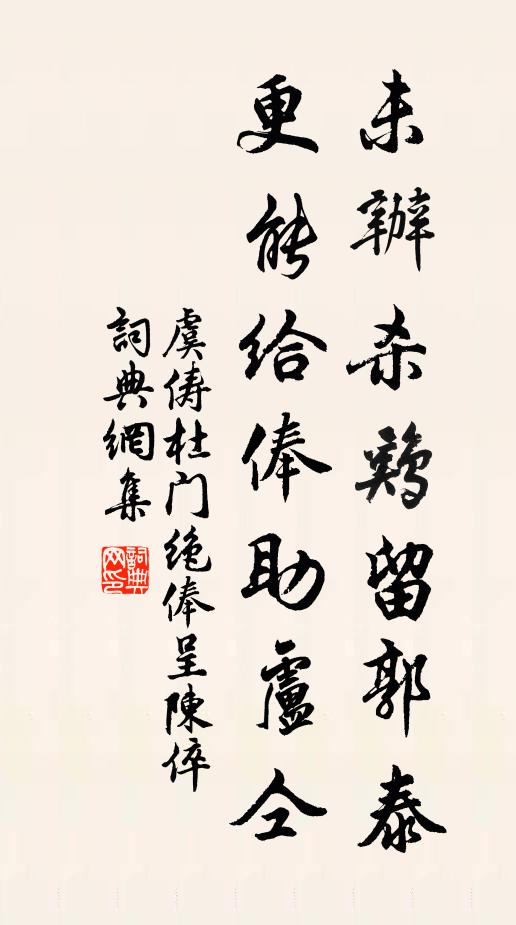 未辦杀鷄留郭泰
更能给俸助盧仝
虞俦杜门绝俸呈陳倅
詞典網集
詞典网印